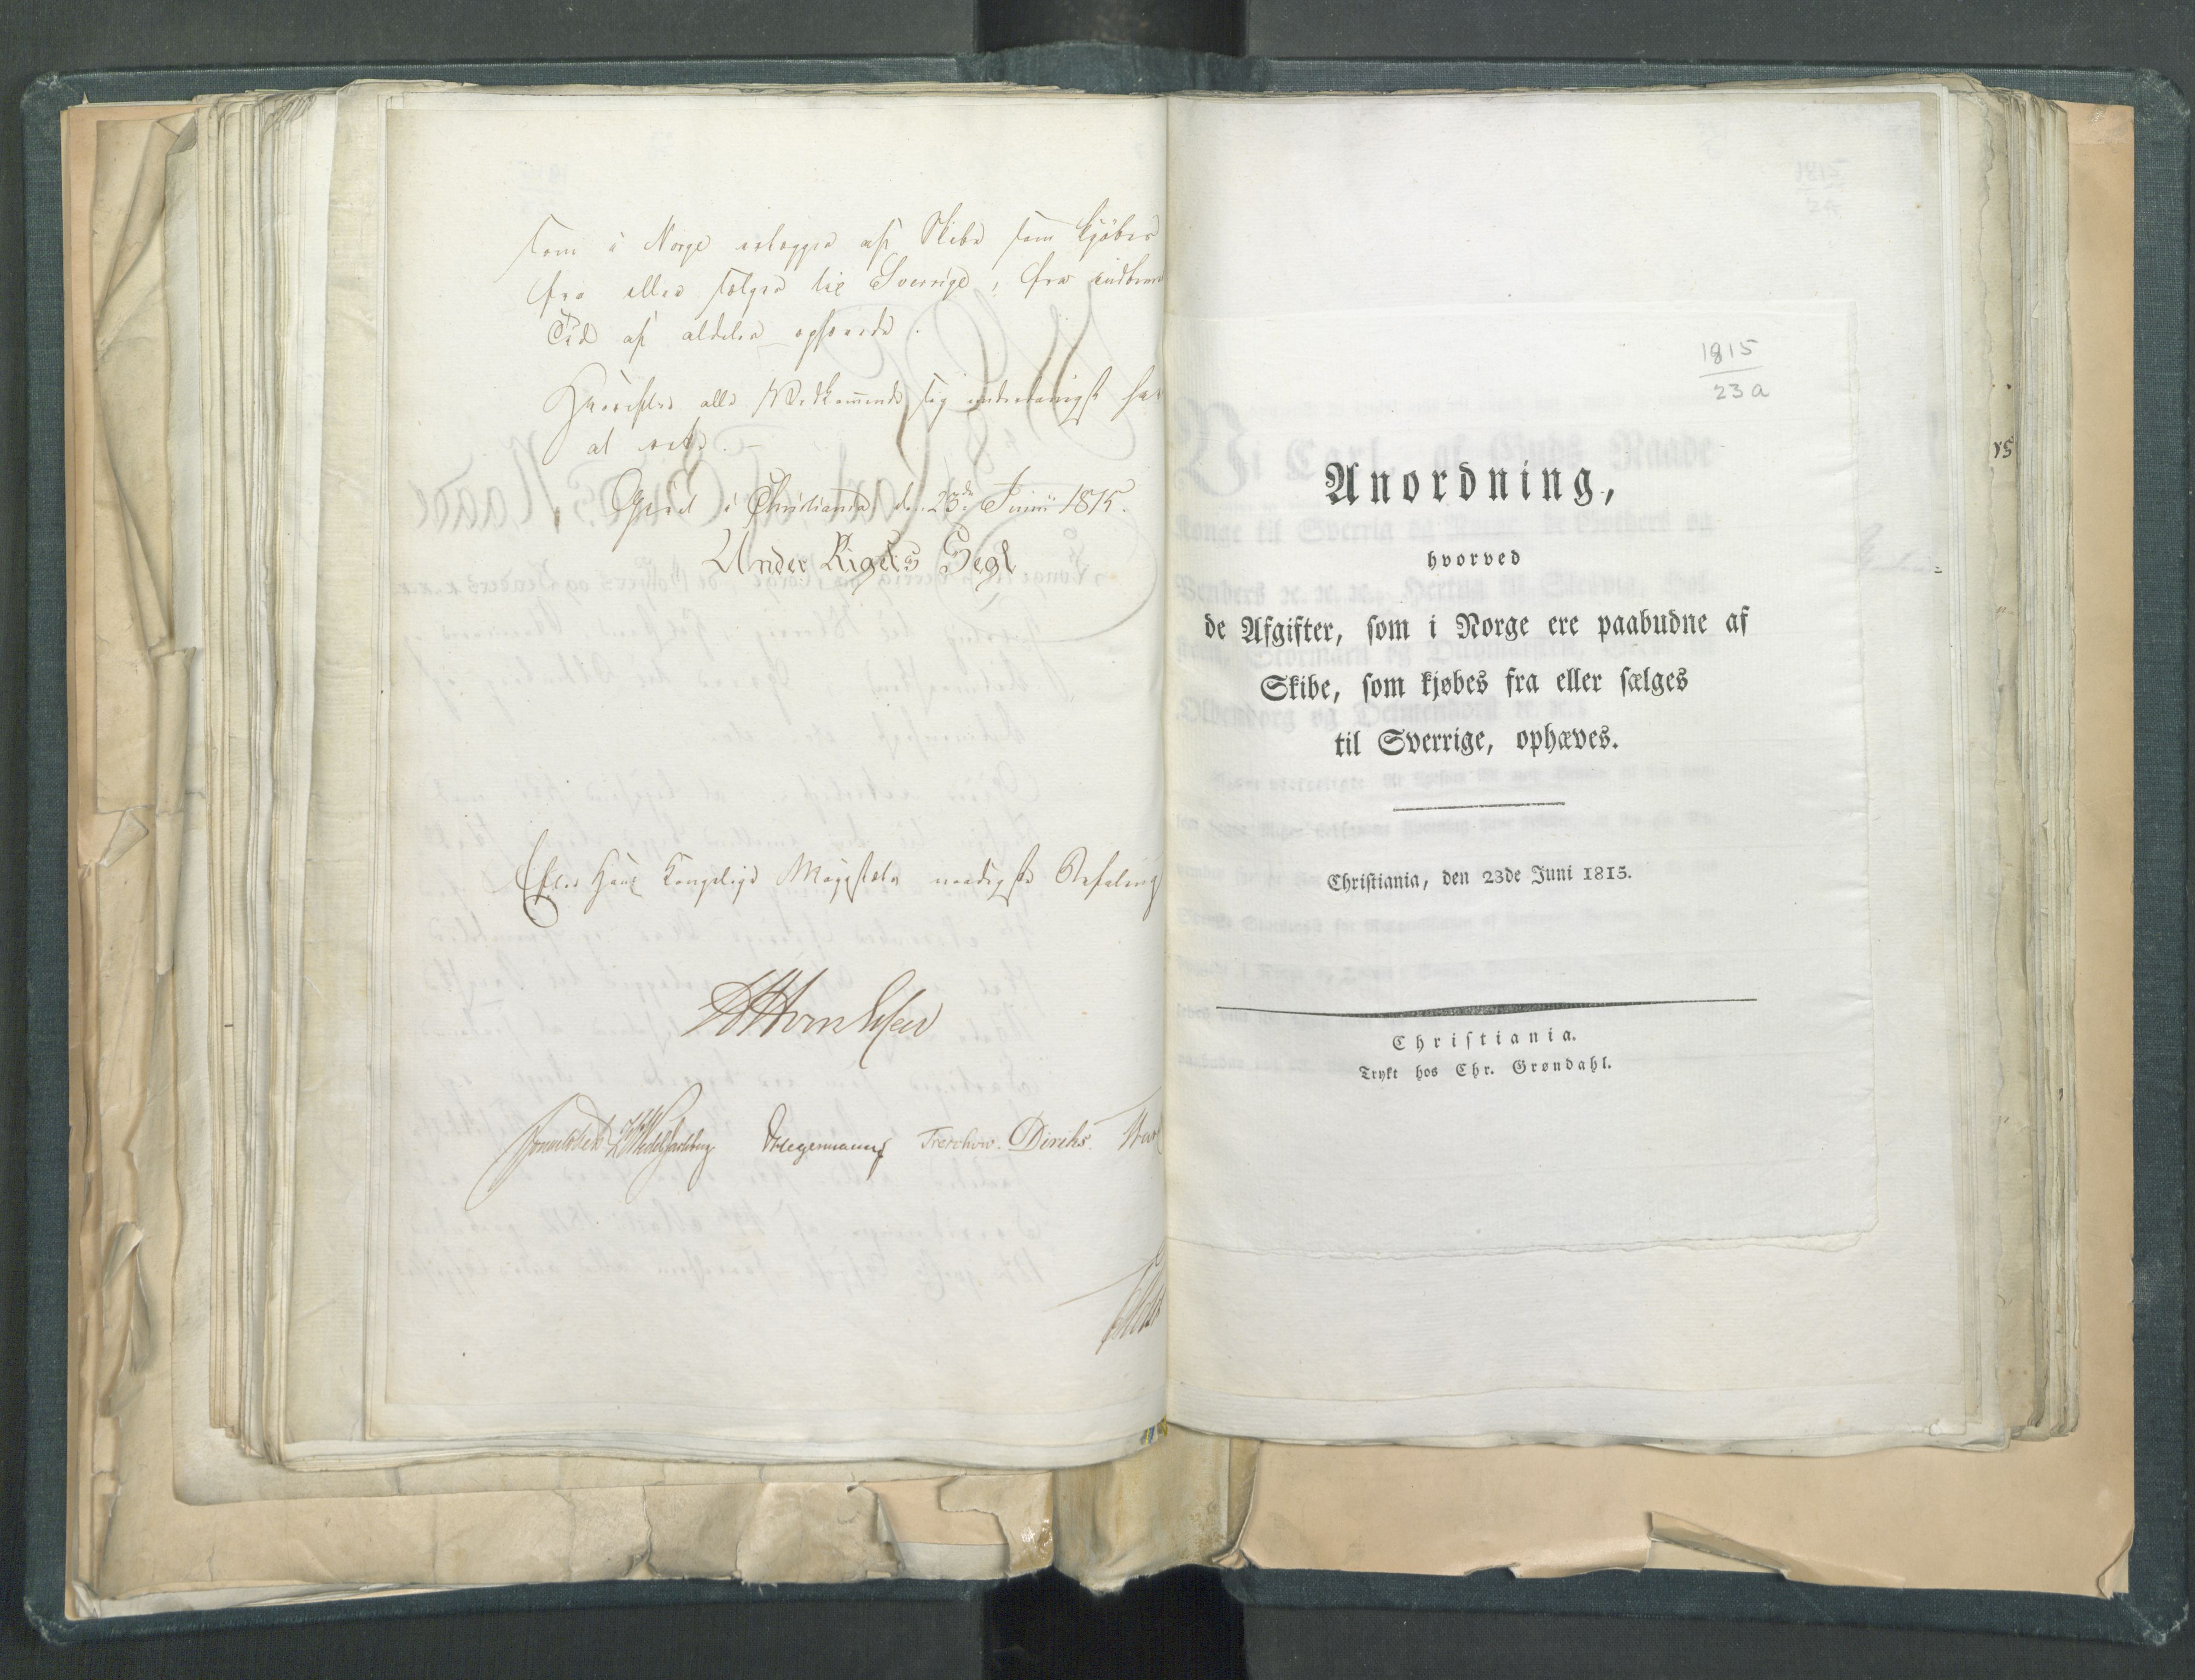 som i Norge erlægges af Skibe som kjøbes
fra eller sælges til Sverrige, fra
Tid af aldeles ophæves.
Hvorefter alle Vedkommende sig underdanigst
at rette.
Givet i Christiania, den 23de Junii 1815.
Under Rigets Segl
Efter Hans Kongelige Majestæts naadigste Befaling
Sommerhielm Wedel Jarlsberg Hegermann Treschow. Diriks.
1815
23 a
Anordning,
hvorved
de Afgifter, som i Norge ere paabudne af
Skibe, som kjøbes fra eller sælges
til Sverrige, ophæves.
Christiania, den 23de Juni 1815.
Christiania.
Trykt hos Chr. Grøndahl.